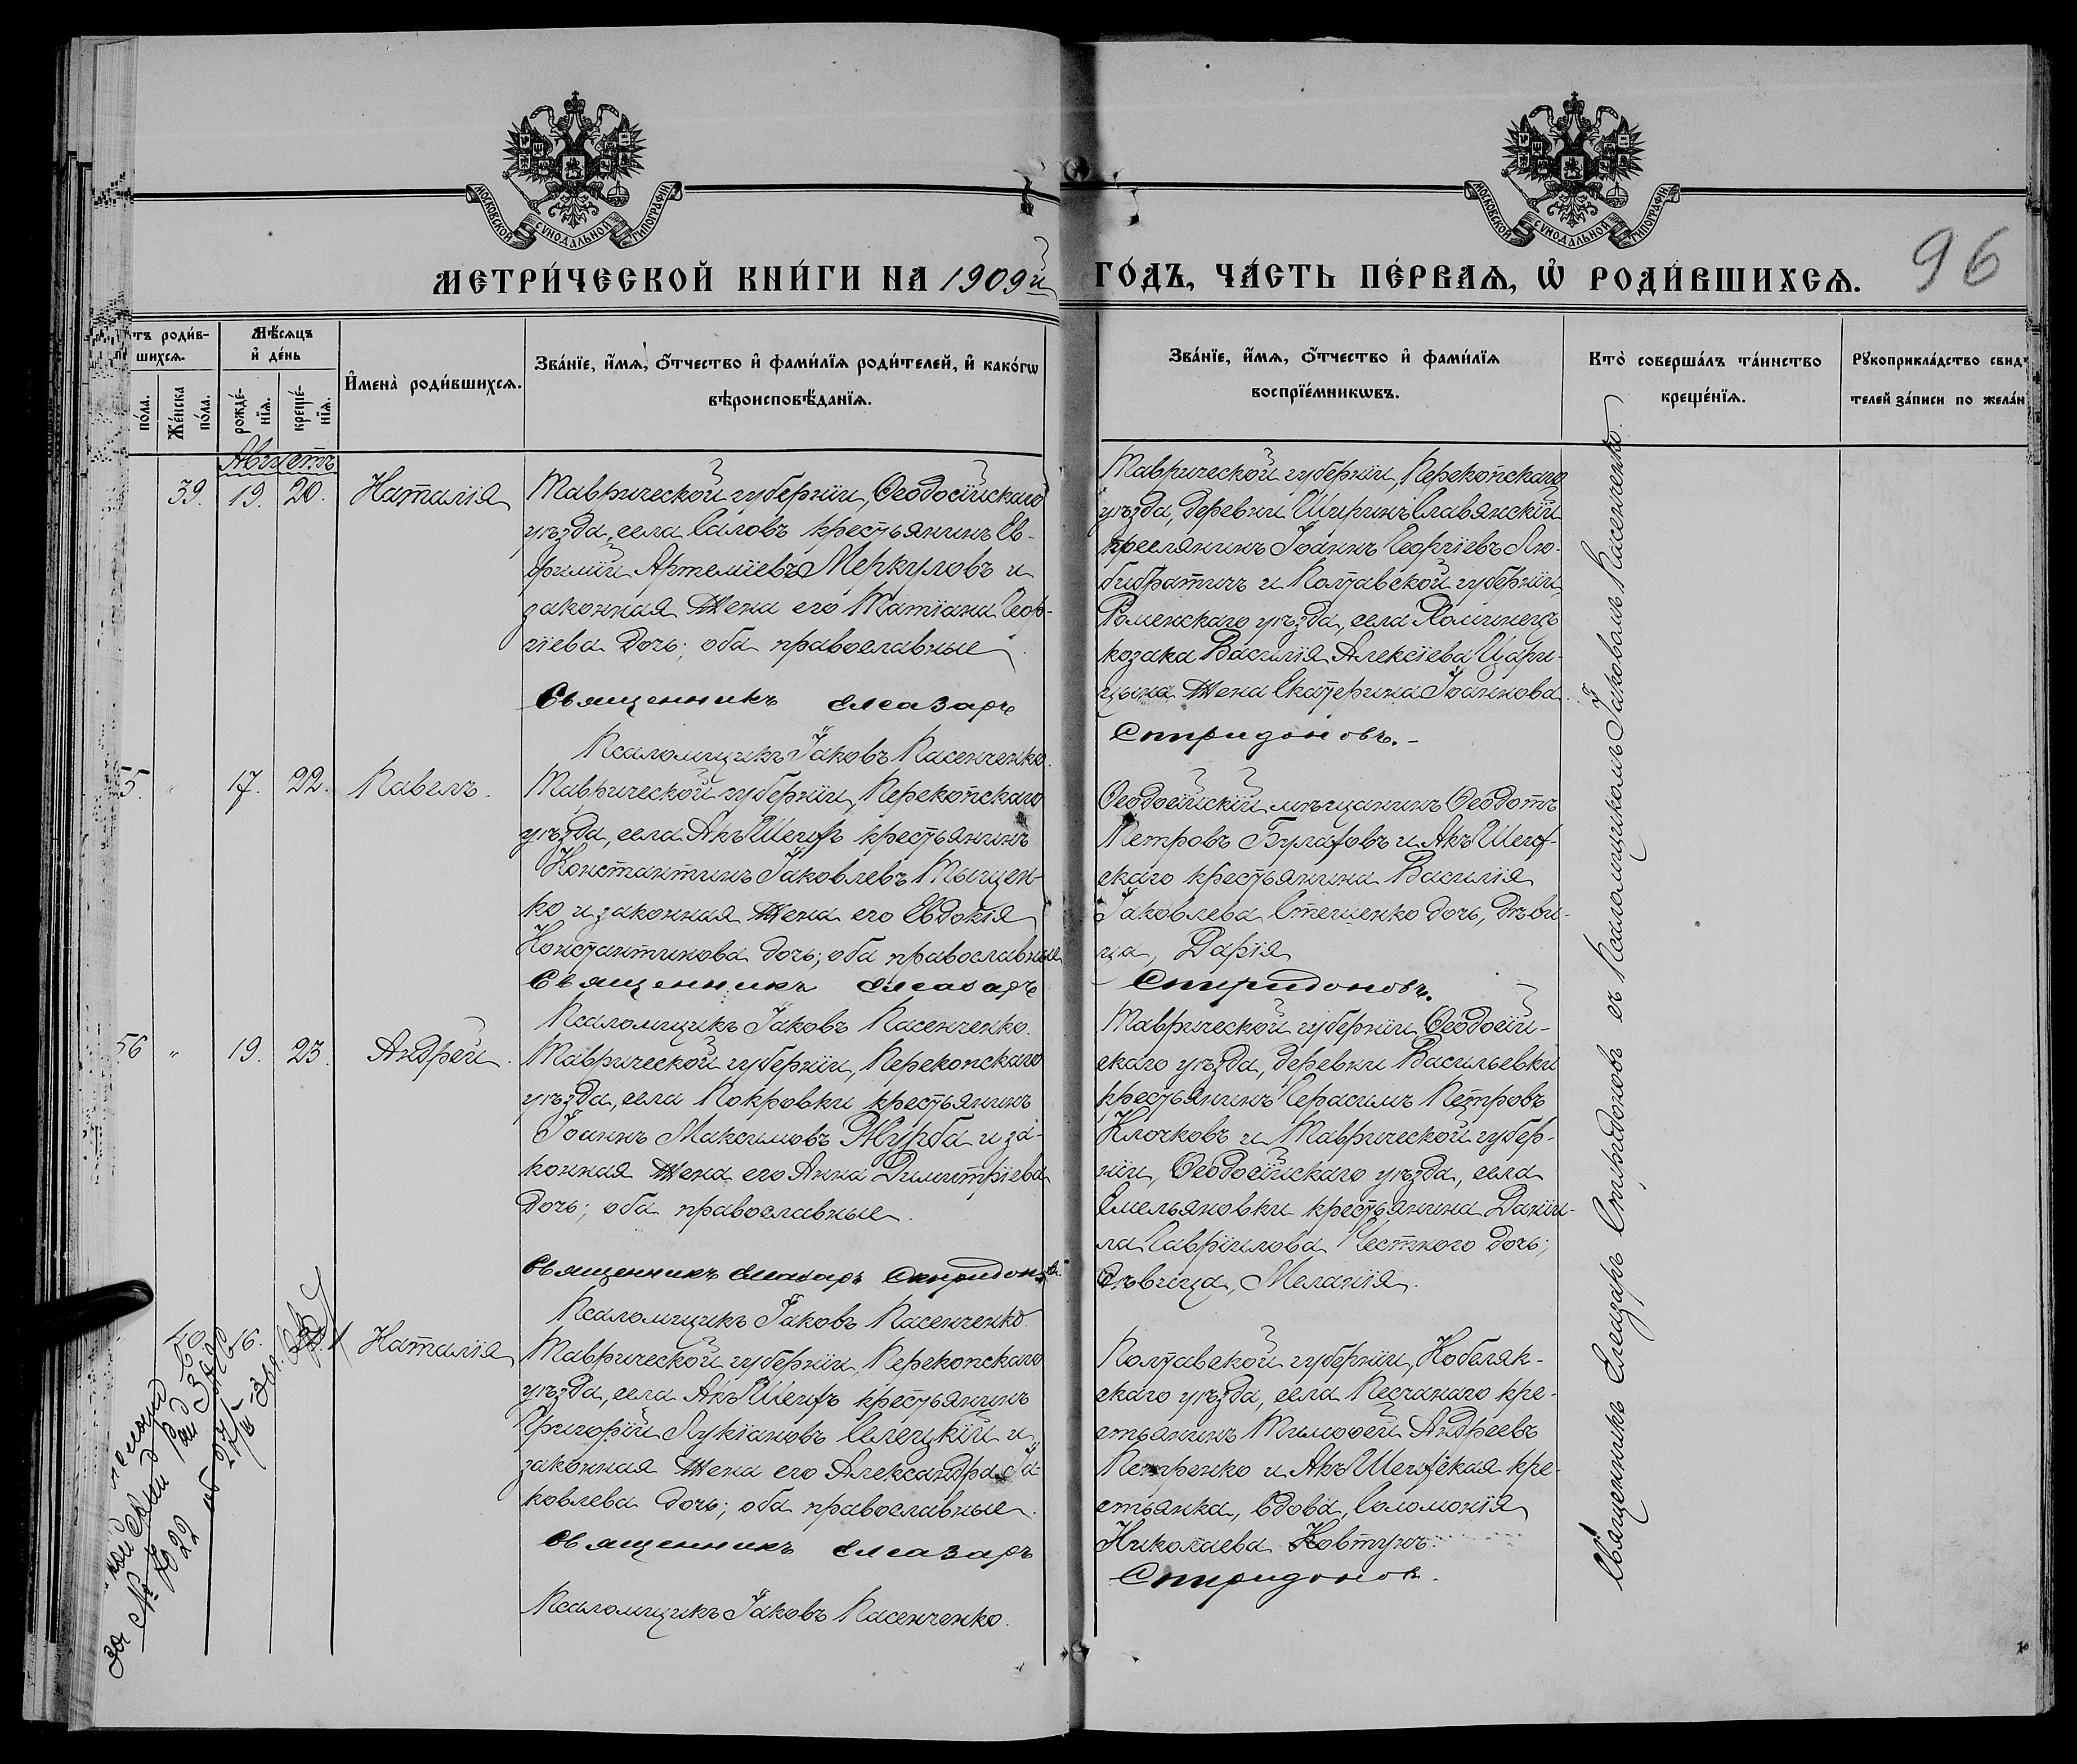 МОСКОВСКОЙ СѴНОДАЛЬНОЙ ТИПОГРАФІИ
МОСКОВСКОЙ СѴНОДАЛЬНОЙ ТИПОГРАФІИ
МЕТРИ́ЧЕСКОЙ КНИ́ГИ НА 1909й ГО́ДЪ, ЧА́СТЬ ПЕ́РВАѦ, Ѡ҆ РОДИ́ВШИХСѦ.
96
тъ роди́в-
шихсѧ.
По́ла.
Же́нска
по́ла.
Мѣ́сѧцъ
и҆ де́нь
рожде́-
нїѧ.
креще́-
нїѧ.
И҆мена̀ роди́вшихсѧ.
Зва́нїе, и҆́мѧ, ѻ҆́тчество и҆ фами́лїѧ роди́телей, и҆ како́гѡ
вѣроисповѣ́данїѧ.
Зва́нїе, и҆́мѧ, ѻ҆́тчество и҆ фами́лїѧ
воспрїе́мникѡвъ.
Кто̀ соверша́лъ та́инство
креще́нїѧ.
Рꙋкоприкла́дство свид
телей за́писи по жела́н
Августъ
39. 19. 20. Наталія
Таврической губерніи, Ѳеодосійскаго
уѣзда, села Саловъ крестьянинъ Ев-
фимій Артеміевъ Меркуловъ и
законная жена его Татіана Геор-
гіева дочь; оба православные
Священникъ Елеазаръ
Псаломщикъ Іаковъ Пасенченко.
Таврической губерніи, Перекопскаго
уѣзда, деревни Ширинъ Славянскій
поселянинъ Іоаннъ Георгіевъ Лю-
бибратичъ и Полтавской губерніи
Роменскаго уѣзда, села
козака Василія Алексіева Цари-
цына жена Екатерина Іоаннова.
Спиридоновъ.-
55. " 17. 22. Павелъ.
Таврической губерніи, Перекопскаго
уѣзда, села Акъ Шейхъ крестьянинъ
Константинъ Іаковлевъ Тыщен-
ко и законная жена его Евдокія
Константинова дочь; оба православные
Священникъ Елеазаръ
Псаломщикъ Іаковъ Пасенченко.
Ѳеодосійскій мѣщанинъ Ѳеодотъ
Петровъ и Акъ Шейх-
скаго крестьянина Василія
Іаковлева Стешенко дочь, дѣви-
ца, Дарія
Спиридоновъ.
56 " 19. 23. Андрей.
Таврической губерніи, Перекопскаго
уѣзда, села Покровки крестьянинъ
Іоаннъ Максимовъ Журба и за-
конная жена его Анна Димитріева
дочь; оба православные.
Священникъ Елеазаръ Спиридоновъ
Псаломщикъ Іаковъ Пасенченко
Таврической губерніи Ѳеодосій-
скаго уѣзда, деревни Васильевки
крестьянинъ Герасимъ Петровъ
Клочковъ и Таврической губер-
ніи, Ѳеодосійскаго уѣзда, села
Емельяновки крестьянина Дании-
ла Гавріилова Честного дочь,
дѣвица, Меланія.
40. 16. Наталія
Таврической губерніи, Перекопскаго
уѣзда, села Акъ Шейхъ крестьянинъ
Григорій Лукіановъ Селецкій и
законная жена его Александра Іа-
ковлева дочь; оба православные.
Священникъ Елеазаръ
Псаломщикъ Іаковъ Пасенченко.
Полтавской губерніи, Кобеляк-
скаго уѣзда, села Песчанаго кре-
стьянинъ Тимоѳей Андреевъ
Петренко и Акъ Шейхская кре-
стьянка, вдова, Соломонія
Николаева Ковтунъ.
Спиридонов.
Священникъ Елеазаръ Спиридоновъ съ Псаломщикомъ Іаковомъ Пасенченко.